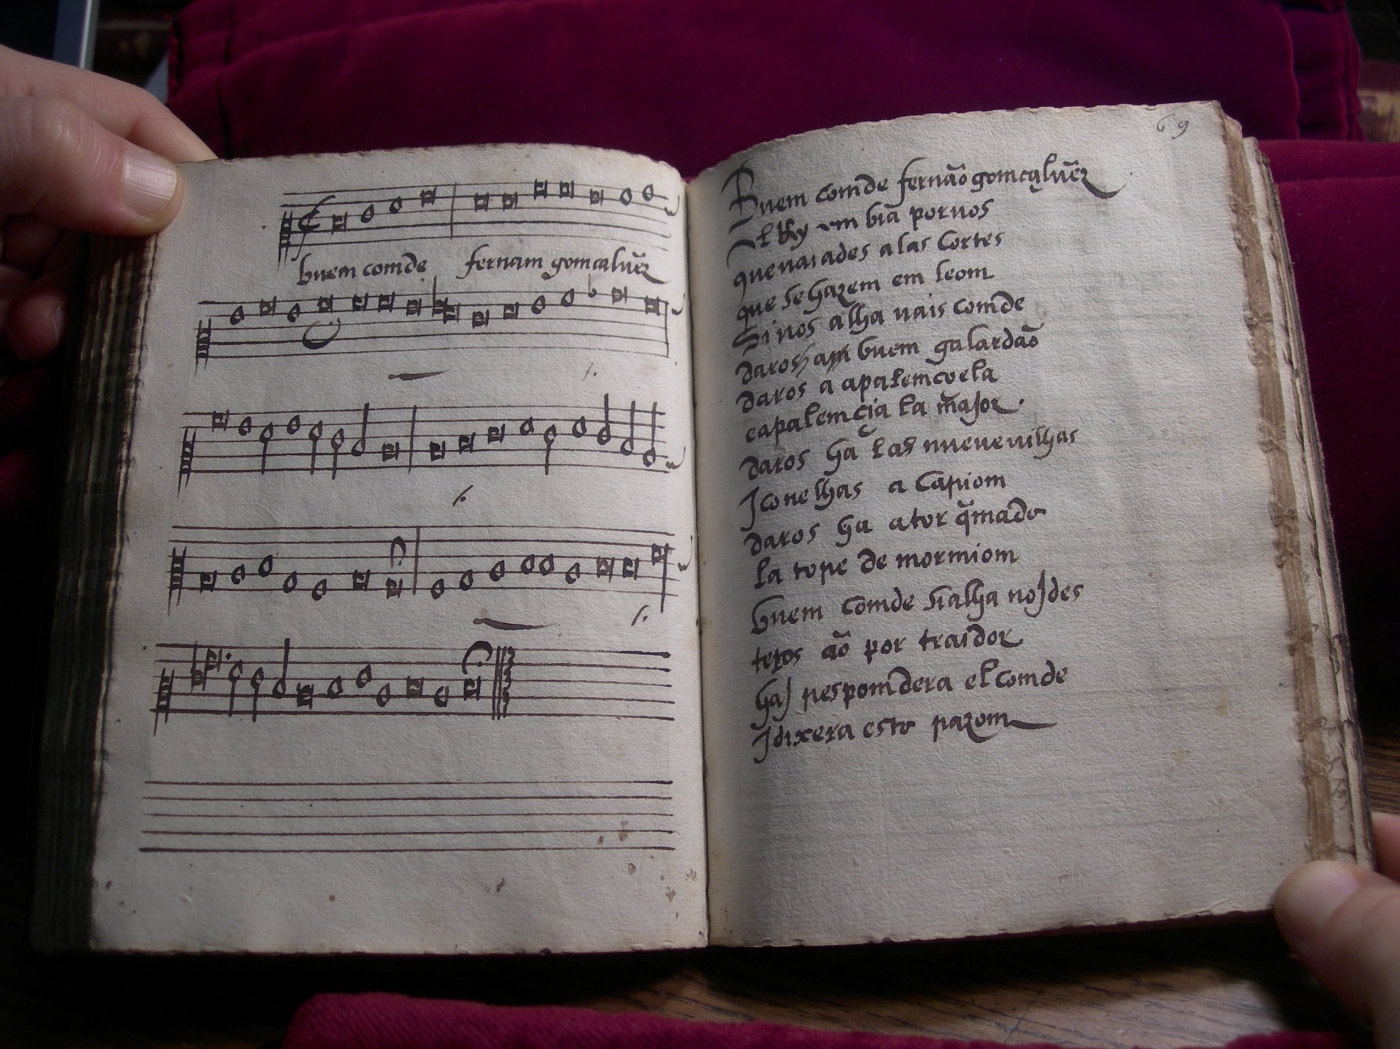 buem comde fernam gomcaluēz
69
Buem comde fernão gomcaluēz
el Rey embia por uos
que uaiades a las Cortes
que se hazem em leom
Si uos alha uais comde
daros ham buem galardão
daros a a palemcuela
e a palemçia la major
daros ha las nueue uilhas
J con elhas a Capiom
daros ha a tor q̄mada
la tope de mormiom
buem comde si alha no Jdes
teros ão por traidor
haJ respomdera el comde
J dixera esta razom